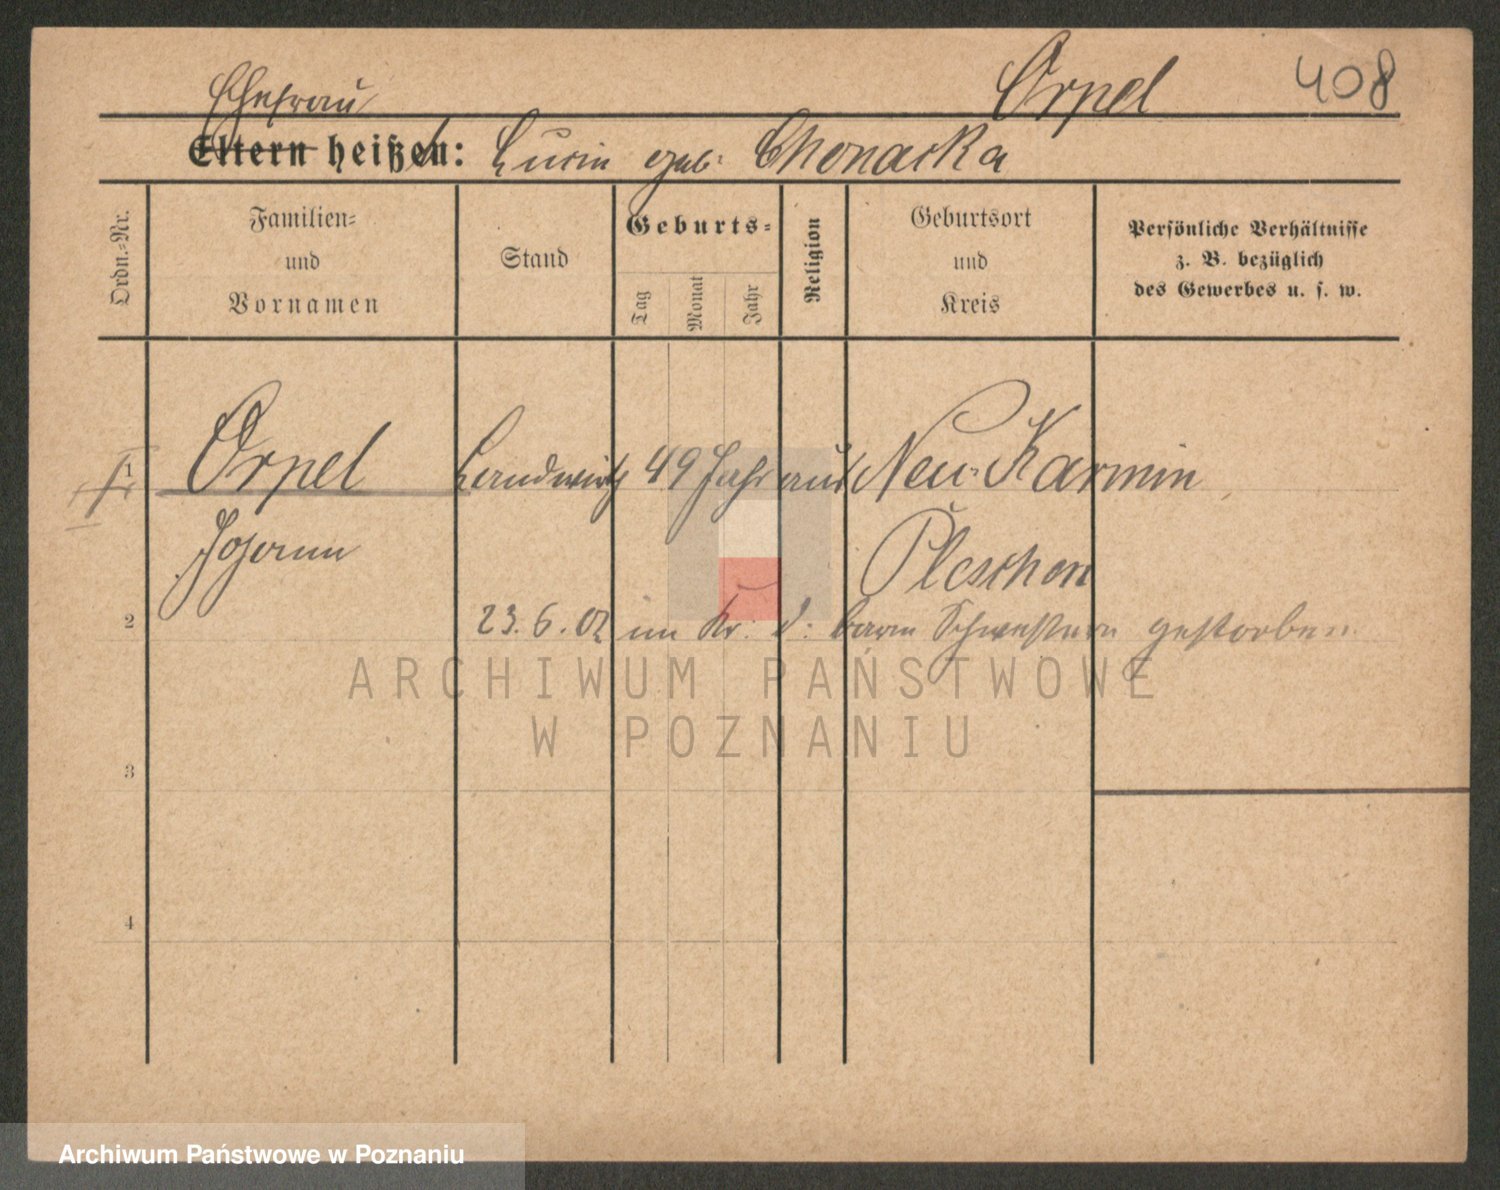 Orpel 408
Ehefrau
Eltern heißen: Lucie geb: Chonacka
Ordn.-Nr.
Familien-
und
Vornamen
Stand
Geburts-
Tag
Monat
Jahr
Religion
Geburtsort
und
Kreis
Persönliche Verhältnisse
z. B. bezüglich
des Gewerbes u. s. w.
1 Orpel Landwirth 49 Jahr aus Neu-Karmin
Johann Pleschen
2 23.6.02 im Kr: d: barm Schwestern gestorben
ARCHIWUM PAŃSTWOWE
W POZNANIU
3
4
Archiwum Państwowe w Poznaniu